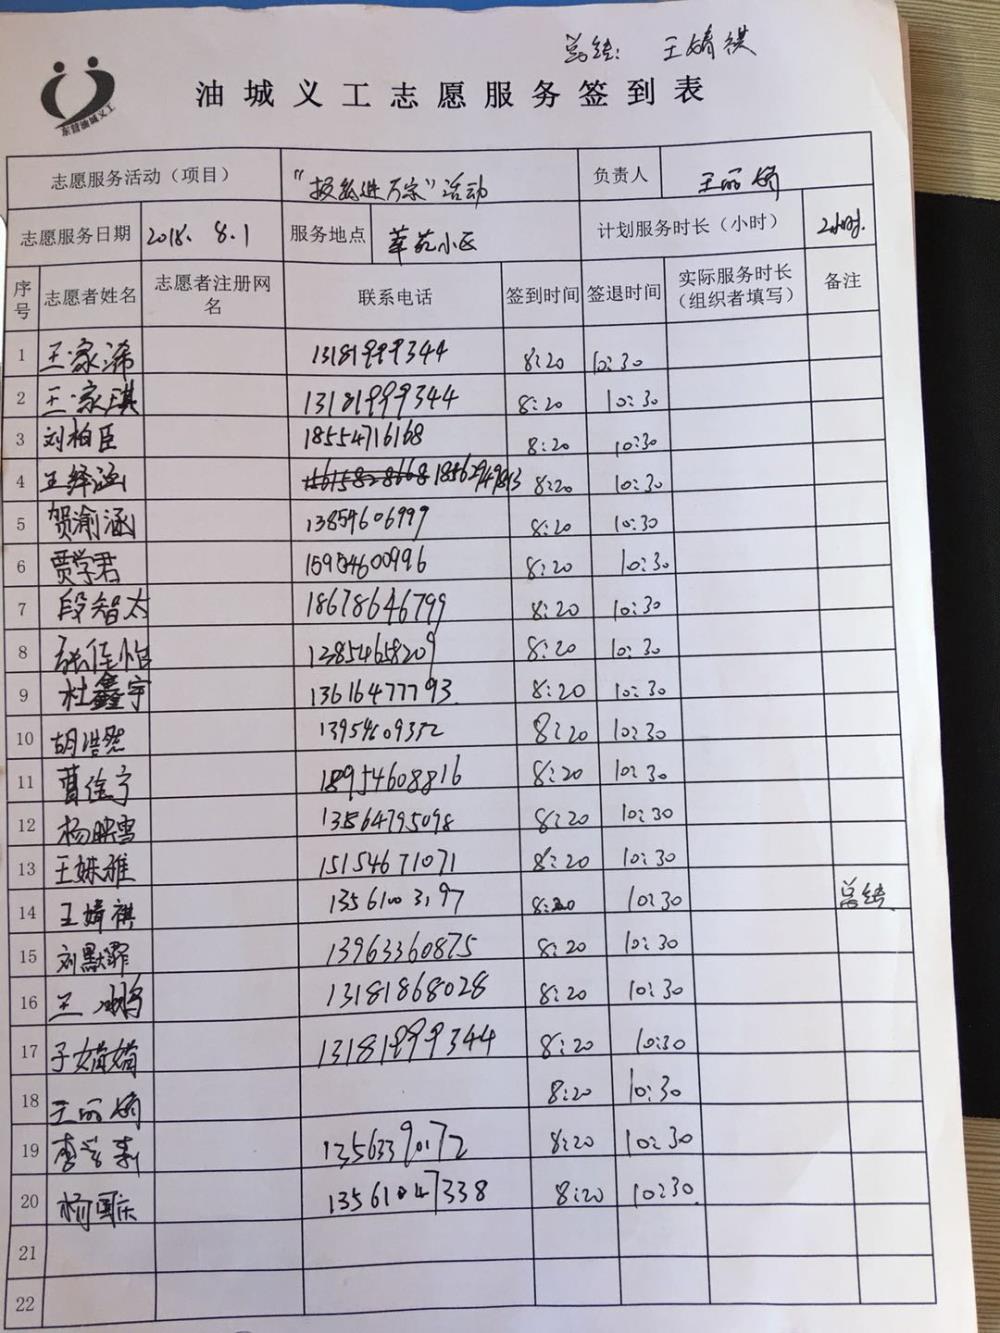 总结: 王婧祺
东营油城义工
油城义工志愿服务签到表
志愿服务活动（项目） 进万家"活动 负责人 王丽娇
志愿服务日期 2018. 8.1 服务地点 莘苑小区 计划服务时长（小时） 2小时.
序号 志愿者姓名 志愿者注册网名 联系电话 签到时间 签退时间 实际服务时长（组织者填写） 备注
1 王家 13181999344 8:20 10:30
2 王家琪 13181999344 8:20 10:30
3 刘柏臣 18554716168 8:20 10:30
4 王绎涵 18562949843 8:20 10:30
5 贺渝涵 13854606999 8:20 10:30
6 贾学君 15954600996 8:20 10:30
7 段智太 18678646799 8:20 10:30
8 张佳怡 8:20 10:30
9 杜鑫宇 13616477793. 8:20 10:30
10 胡浩然 8:20 10:30
11 曹佳宁 18954608816 8:20 10:30
12 杨映雪 8:20 10:30
13 王姝雅 15154671071 8:20 10:30
14 王婧祺 8:20 10:30 总结
15 刘默霏 13963360875 8:20 10:30
16 王鹏 13181868028 8:20 10:30
17 13181999344 8:20 10:30
18 王丽娇 8:20 10:30
19 李 8:20 10:30
20 杨国庆 13561047338 8:20 10:30
21
22